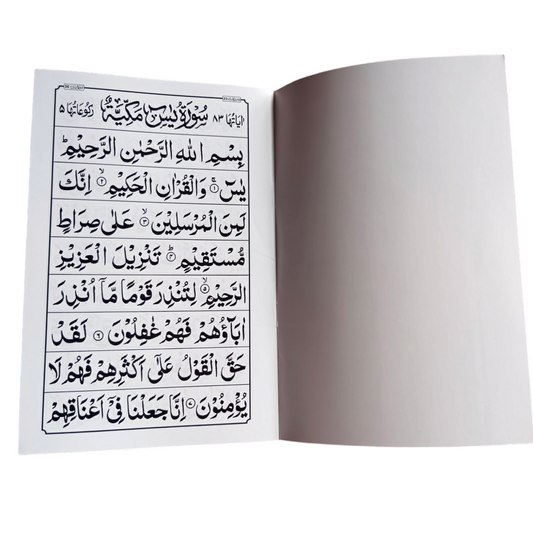 اٰيَاتُهَا ٨٣ سُوْرَةُ يٰسٓ مَكِّيَّةٌ رُكُوْعَاتُهَا ٥
بِسْمِ اللهِ الرَّحْمٰنِ الرَّحِيْمِ ط
يٰسٓ ١ ۚ وَالْقُرْاٰنِ الْحَكِيْمِ ٢ ۙ اِنَّكَ
لَمِنَ الْمُرْسَلِيْنَ ٣ ۙ عَلٰى صِرَاطٍ
مُّسْتَقِيْمٍ ٤ ط تَنْزِيْلَ الْعَزِيْزِ
الرَّحِيْمِ ٥ ۙ لِتُنْذِرَ قَوْمًا مَّاۤ اُنْذِرَ
اٰبَاۤؤُهُمْ فَهُمْ غٰفِلُوْنَ ٦ لَقَدْ
حَقَّ الْقَوْلُ عَلٰۤى اَكْثَرِهِمْ فَهُمْ لَا
يُؤْمِنُوْنَ ٧ اِنَّا جَعَلْنَا فِيْۤ اَعْنَاقِهِمْ